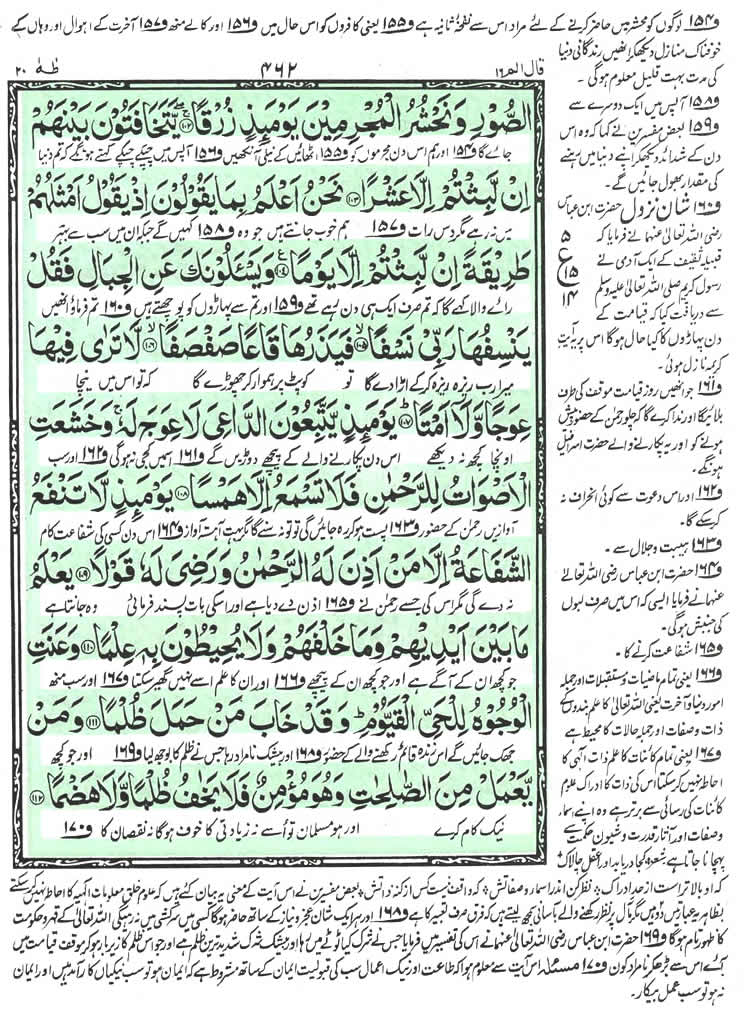 و۱۵۴ لوگوں کو محشر میں حاضر کرنے کے لئے مراد اس سے نفخۂ ثانیہ ہے و۱۵۵ یعنی کافروں کو اس حال میں و۱۵۶ اور کالے منھ و۱۵۷ آخرت کے اہوال اور وہاں کے
خوفناک منازل دیکھ کر انھیں زندگانی دنیا
کی مدت بہت قلیل معلوم ہوگی۔
و۱۵۸ آپس میں ایک دوسرے سے
و۱۵۹ بعض مفسرین نے کہا کہ وہ اس
دن کے شدائد دیکھ کر اپنے دنیا میں رہنے
کی مقدار بھول جائیں گے۔
و۱۶۰ شان نزول حضرت ابن عباس
رضی اللہ تعالیٰ عنہما نے فرمایا کہ
قبیلہ ثقیف کے ایک آدمی نے
رسول کریم صلی اللہ تعالیٰ علیہ وسلم
سے دریافت کیا کہ قیامت کے
دن پہاڑوں کا کیا حال ہوگا اس پر یہ آیتِ
کریمہ نازل ہوئی۔
و۱۶۱ جو انھیں روز قیامت موقف کی طرف
بلائے گا اور ندا کرے گا کہ چلو رحمن کے حضور پیش
ہونے کو اور یہ پکارنے والے حضرت اسرافیل
ہونگے۔
و۱۶۲ اور اس دعوت سے کوئی انحراف نہ
کرسکے گا۔
و۱۶۳ ہیبت و جلال سے۔
و۱۶۴ حضرت ابن عباس رضی اللہ تعالیٰ
عنہما نے فرمایا ایسی کہ اس میں صرف لبوں
کی جنبش ہوگی۔
و۱۶۵ شفاعت کرنے کا۔
و۱۶۶ یعنی تمام ماضیات و مستقبلات اور جملہ
امور دنیا و آخرت یعنی اللہ تعالیٰ کا علم بندوں کے
ذات وصفات اور جملہ حالات کا محیط ہے
و۱۶۷ یعنی تمام کائنات کا علم ذات الٰہی کا
احاطہ نہیں کرسکتا اس کی ذات کا ادراک علوم
کائنات کی رسائی سے برتر ہے وہ اپنے اسماء
وصفات اور آثار قدرت و شیون حکمت سے
پہچانا جاتا ہے شعر
۵
ع
۱۵
۱۴
قال الم ۱۶
۴۶۲
طٰهٰ ۲۰
الصُّوْرِ وَنَحْشُرُ الْمُجْرِمِیْنَ یَوْمَئِذٍ زُرْقًا ﴿۱۰۲﴾ یَّتَخَافَتُوْنَ بَیْنَهُمْ
جائے گا و۱۵۴ اور ہم اس دن مجرموں کو و۱۵۵ اٹھائیں گے نیلی آنکھیں و۱۵۶ آپس میں چپکے چپکے کہتے ہونگے کہ تم دنیا
اِنْ لَّبِثْتُمْ اِلَّا عَشْرًا ﴿۱۰۳﴾ نَحْنُ اَعْلَمُ بِمَا یَقُوْلُوْنَ اِذْ یَقُوْلُ اَمْثَلُهُمْ
میں نہ رہے مگر دس رات و۱۵۷ ہم خوب جانتے ہیں جو وہ و۱۵۸ کہیں گے جبکہ ان میں سب سے بہتر
طَرِیْقَةً اِنْ لَّبِثْتُمْ اِلَّا یَوْمًا ﴿۱۰۴﴾ وَیَسْـَٔلُوْنَكَ عَنِ الْجِبَالِ فَقُلْ
رائے والا کہے گا کہ تم صرف ایک ہی دن رہے تھے و۱۵۹ اور تم سے پہاڑوں کو پوچھتے ہیں و۱۶۰ تم فرماؤ انھیں
یَنْسِفُهَا رَبِّیْ نَسْفًا ﴿۱۰۵﴾ فَیَذَرُهَا قَاعًا صَفْصَفًا ﴿۱۰۶﴾ لَّا تَرٰی فِیْهَا
میرا رب ریزہ ریزہ کرکے اڑا دے گا تو کو پٹ پر ہموار کر چھوڑے گا کہ تو اس میں نیچا
عِوَجًا وَّلَاۤ اَمْتًا ﴿۱۰۷﴾ یَوْمَئِذٍ یَّتَّبِعُوْنَ الدَّاعِیَ لَا عِوَجَ لَهٗ وَخَشَعَتِ
اونچا کچھ نہ دیکھے اس دن پکارنے والے کے پیچھے دوڑیں گے و۱۶۱ اس میں کجی نہ ہوگی و۱۶۲ اور سب
الْاَصْوَاتُ لِلرَّحْمٰنِ فَلَا تَسْمَعُ اِلَّا هَمْسًا ﴿۱۰۸﴾ یَوْمَئِذٍ لَّا تَنْفَعُ
آوازیں رحمٰن کے حضور و۱۶۳ پست ہو کر رہ جائیں گی تو تو نہ سنے گا مگر بہت آہستہ آواز و۱۶۴ اس دن کسی کی شفاعت کام
الشَّفَاعَةُ اِلَّا مَنْ اَذِنَ لَهُ الرَّحْمٰنُ وَرَضِیَ لَهٗ قَوْلًا ﴿۱۰۹﴾ یَعْلَمُ
نہ دے گی مگر اس کی جسے رحمٰن نے و۱۶۵ اذن دے دیا ہے اور اسکی بات پسند فرمائی وہ جانتا ہے
مَا بَیْنَ اَیْدِیْهِمْ وَمَا خَلْفَهُمْ وَلَا یُحِیْطُوْنَ بِهٖ عِلْمًا ﴿۱۱۰﴾ وَعَنَتِ
جو کچھ ان کے آگے ہے اور جو کچھ ان کے پیچھے و۱۶۶ اور ان کا علم اسے نہیں گھیر سکتا و۱۶۷ اور سب منھ
الْوُجُوْهُ لِلْحَیِّ الْقَیُّوْمِ وَقَدْ خَابَ مَنْ حَمَلَ ظُلْمًا ﴿۱۱۱﴾ وَمَنْ
جھک جائیں گے اس زندہ قائم رکھنے والے کے حضور و۱۶۸ اور بیشک نامراد رہا جس نے ظلم کا بوجھ لیا و۱۶۹ اور جو کچھ
یَّعْمَلْ مِنَ الصّٰلِحٰتِ وَهُوَ مُؤْمِنٌ فَلَا یَخٰفُ ظُلْمًا وَّلَا هَضْمًا ﴿۱۱۲﴾
نیک کام کرے اور ہو مسلمان تو اسے نہ زیادتی کا خوف ہوگا نہ نقصان کا و۱۷۰
بعض مفسرین نے اس آیت کے معنی یہ بیان کئے ہیں کہ علوم خلق معلومات الٰہیہ کا احاطہ نہیں کرسکتے
بظاہر یہ عبارتیں دو ہیں مگر مآل پر نظر رکھنے والے بآسانی سمجھ لیتے ہیں کہ فرق صرف تعبیر کا ہے و۱۶۸ اور ہر ایک شان عجز و نیاز کے ساتھ حاضر ہوگا کسی میں سرکشی نہ رہے گی اللہ تعالیٰ کے قہر و حکومت
کا ظہور تام ہوگا و۱۶۹ حضرت ابن عباس رضی اللہ تعالیٰ عنہما نے اس کی تفسیر میں فرمایا جس نے شرک کیا ٹوٹے میں رہا اور بیشک شرک شدید ترین ظلم ہے اور جو اس ظلم کا زیر بار ہو کر موقف قیامت میں
آئے اس سے بڑھ کر نامراد کون و۱۷۰ مسئلہ اس آیت سے معلوم ہوا کہ طاعت اور نیک اعمال سب کی قبولیت ایمان کے ساتھ مشروط ہے کہ ایمان ہو تو سب نیکیاں کار آمد ہیں اور ایمان
نہ ہو تو سب عمل بیکار۔